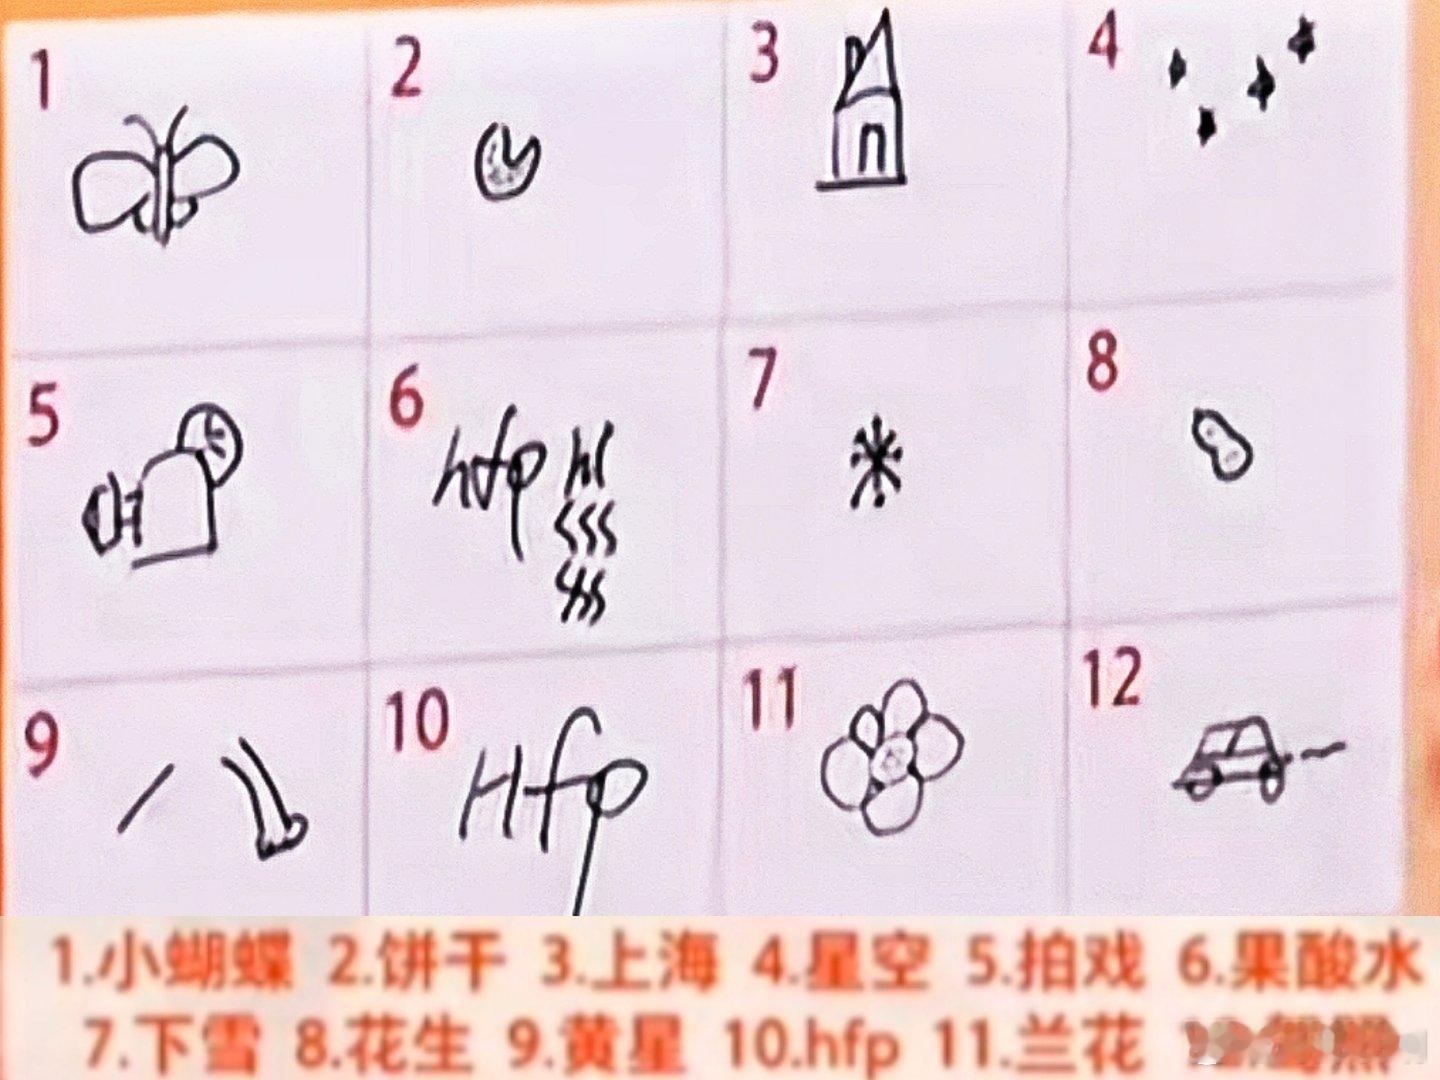 1 2 3 4
5 6 hfp 7 8
9 10 Hfp 11 12
1.小蝴蝶 2.饼干 3.上海 4.星空 5.拍戏 6.果酸水
7.下雪 8.花生 9.黄星 10.hfp 11.兰花